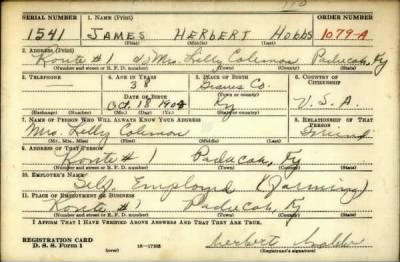 SERIAL NUMBER 1. NAME (Print) ORDER NUMBER
1541 JAMES HERBERT HOBBS 1079-A
(First) (Middle) (Last)
2. ADDRESS (Print)
Route #1 c/o Mrs. Lilly Coleman Paducah, Ky
(Number and street or R. F. D. number) (Town) (County) (State)
3. TELEPHONE 4. AGE IN YEARS 5. PLACE OF BIRTH 6. COUNTRY OF CITIZENSHIP
— 38 Graves Co.
DATE OF BIRTH (Town or county)
Oct. 18 1902 Ky U.S.A.
(Exchange) (Number) (Mo.) (Day) (Yr.) (State or country)
7. NAME OF PERSON WHO WILL ALWAYS KNOW YOUR ADDRESS 8. RELATIONSHIP OF THAT PERSON
Mrs. Lilly Coleman Friend
(Mr., Mrs., Miss) (First) (Middle) (Last)
9. ADDRESS OF THAT PERSON
Route #1 Paducah, Ky
(Number and street or R. F. D. number) (Town) (County) (State)
10. EMPLOYER'S NAME
Self Employed (Farming)
11. PLACE OF EMPLOYMENT OR BUSINESS
Route #1 Paducah, Ky
(Number and street or R. F. D. number) (Town) (County) (State)
I AFFIRM THAT I HAVE VERIFIED ABOVE ANSWERS AND THAT THEY ARE TRUE.
REGISTRATION CARD
D. S. S. Form 1 (over) Herbert
(Registrant's signature)